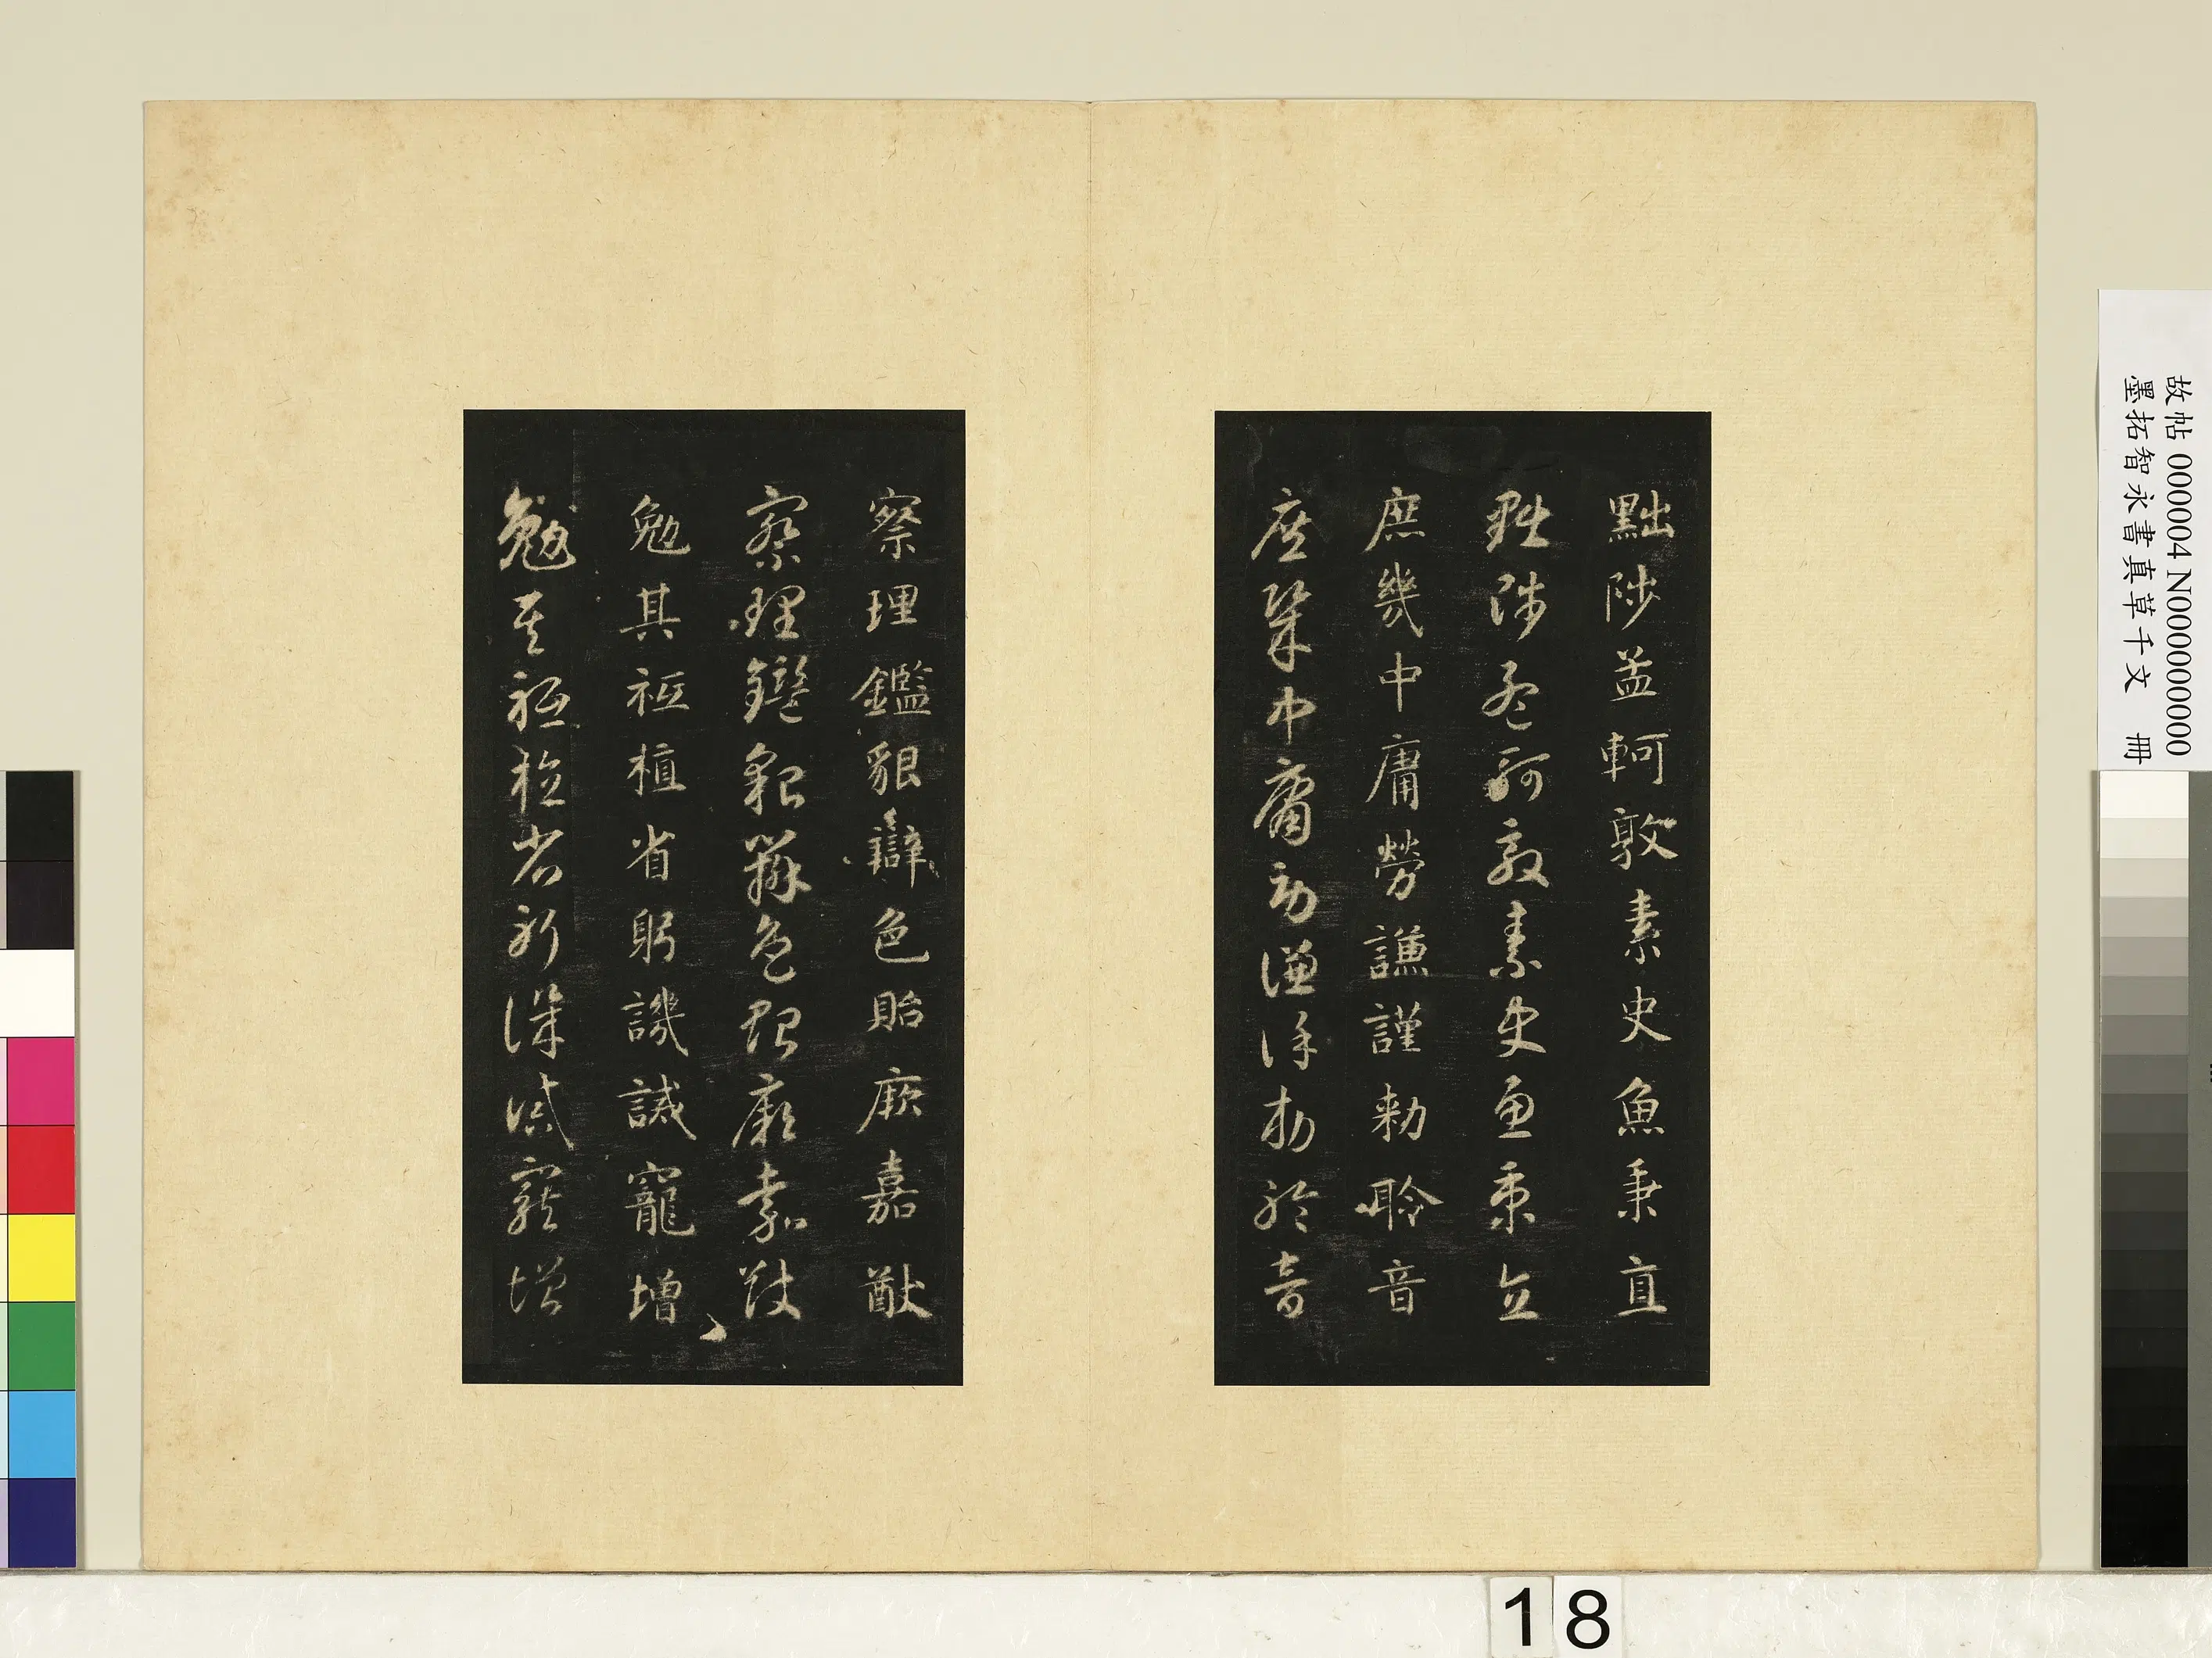 黜陟孟軻敦素史魚秉直
黜陟孟軻敦素史魚秉直
庶幾中庸勞謙謹勅聆音
庶幾中庸勞謙謹勅聆音
察理鑑貌辯色貽厥嘉猷
察理鑑貌辯色貽厥嘉猷
勉其祗植省躬譏誡寵增
勉其祗植省躬譏誡寵增
故帖 000004 N000000000
墨拓智永書真草千文 冊
18